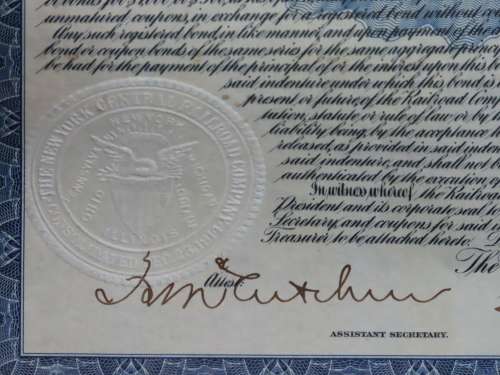 or bonds for $1,000 or $500, as
unmatured coupons, in exchange for a registered bond without co
Any such registered bond, in like manner, and upon payment of the
bond or coupon bonds of the same series for the same aggregate princi
be had for the payment of the principal of or the interest upon this bond
said indenture under which this bond is
present or future, of the Railroad Com
tution, statute or rule of law or by th
liability being, by the acceptance
released, as provided in said inden
said indenture, and shall not b
authenticated by the execution, o
In witness whereof the Railroa
President and its corporate seal to
Secretary, and coupons for said i
Treasurer, to be attached hereto.
THE NEW YORK CENTRAL RAILROAD COMPANY
NEW YORK
OHIO
ILLINOIS
The
Attest:
ASSISTANT SECRETARY.